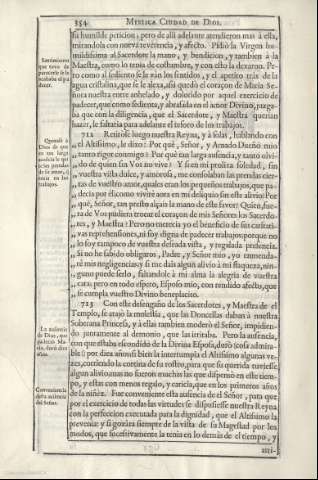 354
MYSTICA CIUDAD DE DIOS.
su humilde peticion; pero de alli adelante atendieron mas à ella,
mirandola con nueva reverencia, y afecto. Pidiò la Virgen hu-
mildissima al Sacerdote la mano, y bendicion, y tambien à la
Maestra, como lo tenia de costumbre, y con esto la dexaron. Pe-
ro como al sediento se le vàn los sentidos, y el apetito tràs de la
agua cristalina, que se le alexa, assi quedò el coraçon de Maria Se-
ñora nuestra entre anhelado, y dolorido por aquel exercicio de
padecer, que como sedienta, y abrasada en el amor Divino, juzga-
ba que con la diligencia, que el Sacerdote, y Maestra querian
hazer, le faltaria para adelante el tesoro de los trabajos.
712 Retiròse luego nuestra Reyna, y à solas, hablando con
el Altissimo, le dixo: Por què, Señor, y Amado Dueño mio
,, tanto rigor conmigo? Por què tan larga ausencia, y tanto olvi-
,, do de quien sin Vos no vive? Y si en mi prolixa soledad, sin
,, vuestra vista dulce, y amorosa, me consolaban las prendas cier-
,, tas de vuestro amor, quales eran los pequeños trabajos, que pa-
,, decia por èl; como vivirè aora en mi deliquio sin este alivio? Por
,, què, Señor, tan presto alçais la mano de este favor? Quien, fue-
,, ra de Vos pudiera trocar el coraçon de mis Señores los Sacerdo-
,, tes, y Maestra? Pero no merecia yo el beneficio de sus caritati-
,, vas reprehensiones, ni soy digna de padecer trabajos, porque no
,, lo soy tampoco de vuestra deseada vista, y regalada presencia.
,, Si no he sabido obligaros, Padre, y Señor mio, yo enmenda-
,, rè mis negligencias; y si me dais algun alivio à mi flaqueza, nin-
,, guno puede serlo, faltandole à mi alma la alegria de vuestra
,, cara; pero en todo espero, Esposo mio, con rendido afecto, que
,, se cumpla vuestro Divino beneplacito.
713 Con este desengaño de los Sacerdotes, y Maestra de el
Templo, se atajò la molestia, que las Doncellas daban à nuestra
Soberana Princesa, y à ellas tambien moderò el Señor, impidien-
do juntamente al demonio, que las irritaba. Pero la ausencia,
con que estaba escondido de la Divina Esposa, durò (cosa admira-
ble!) por diez años; si bien la interrumpia el Altissimo algunas ve-
zes, corriendo la cortina de su rostro, para que su querida tuviesse
algun alivio; mas no fueron muchas las que dispensò en este tiem-
po, y estas con menos regalo, y caricia, que en los primeros años
de la niñez. Fue conveniente esta ausencia de el Señor, para que
por el exercicio de todas las virtudes se dispusiesse nuestra Reyna
con la perfeccion executada para la dignidad, que el Altissimo la
prevenia: y si gozàra siempre de la vista de su Magestad por los
modos, que sucessivamente la tenia en lo demàs de el tiempo, y
La ausencia
de Dios, que
Conveniencia de
esta ausencia
del Señor.